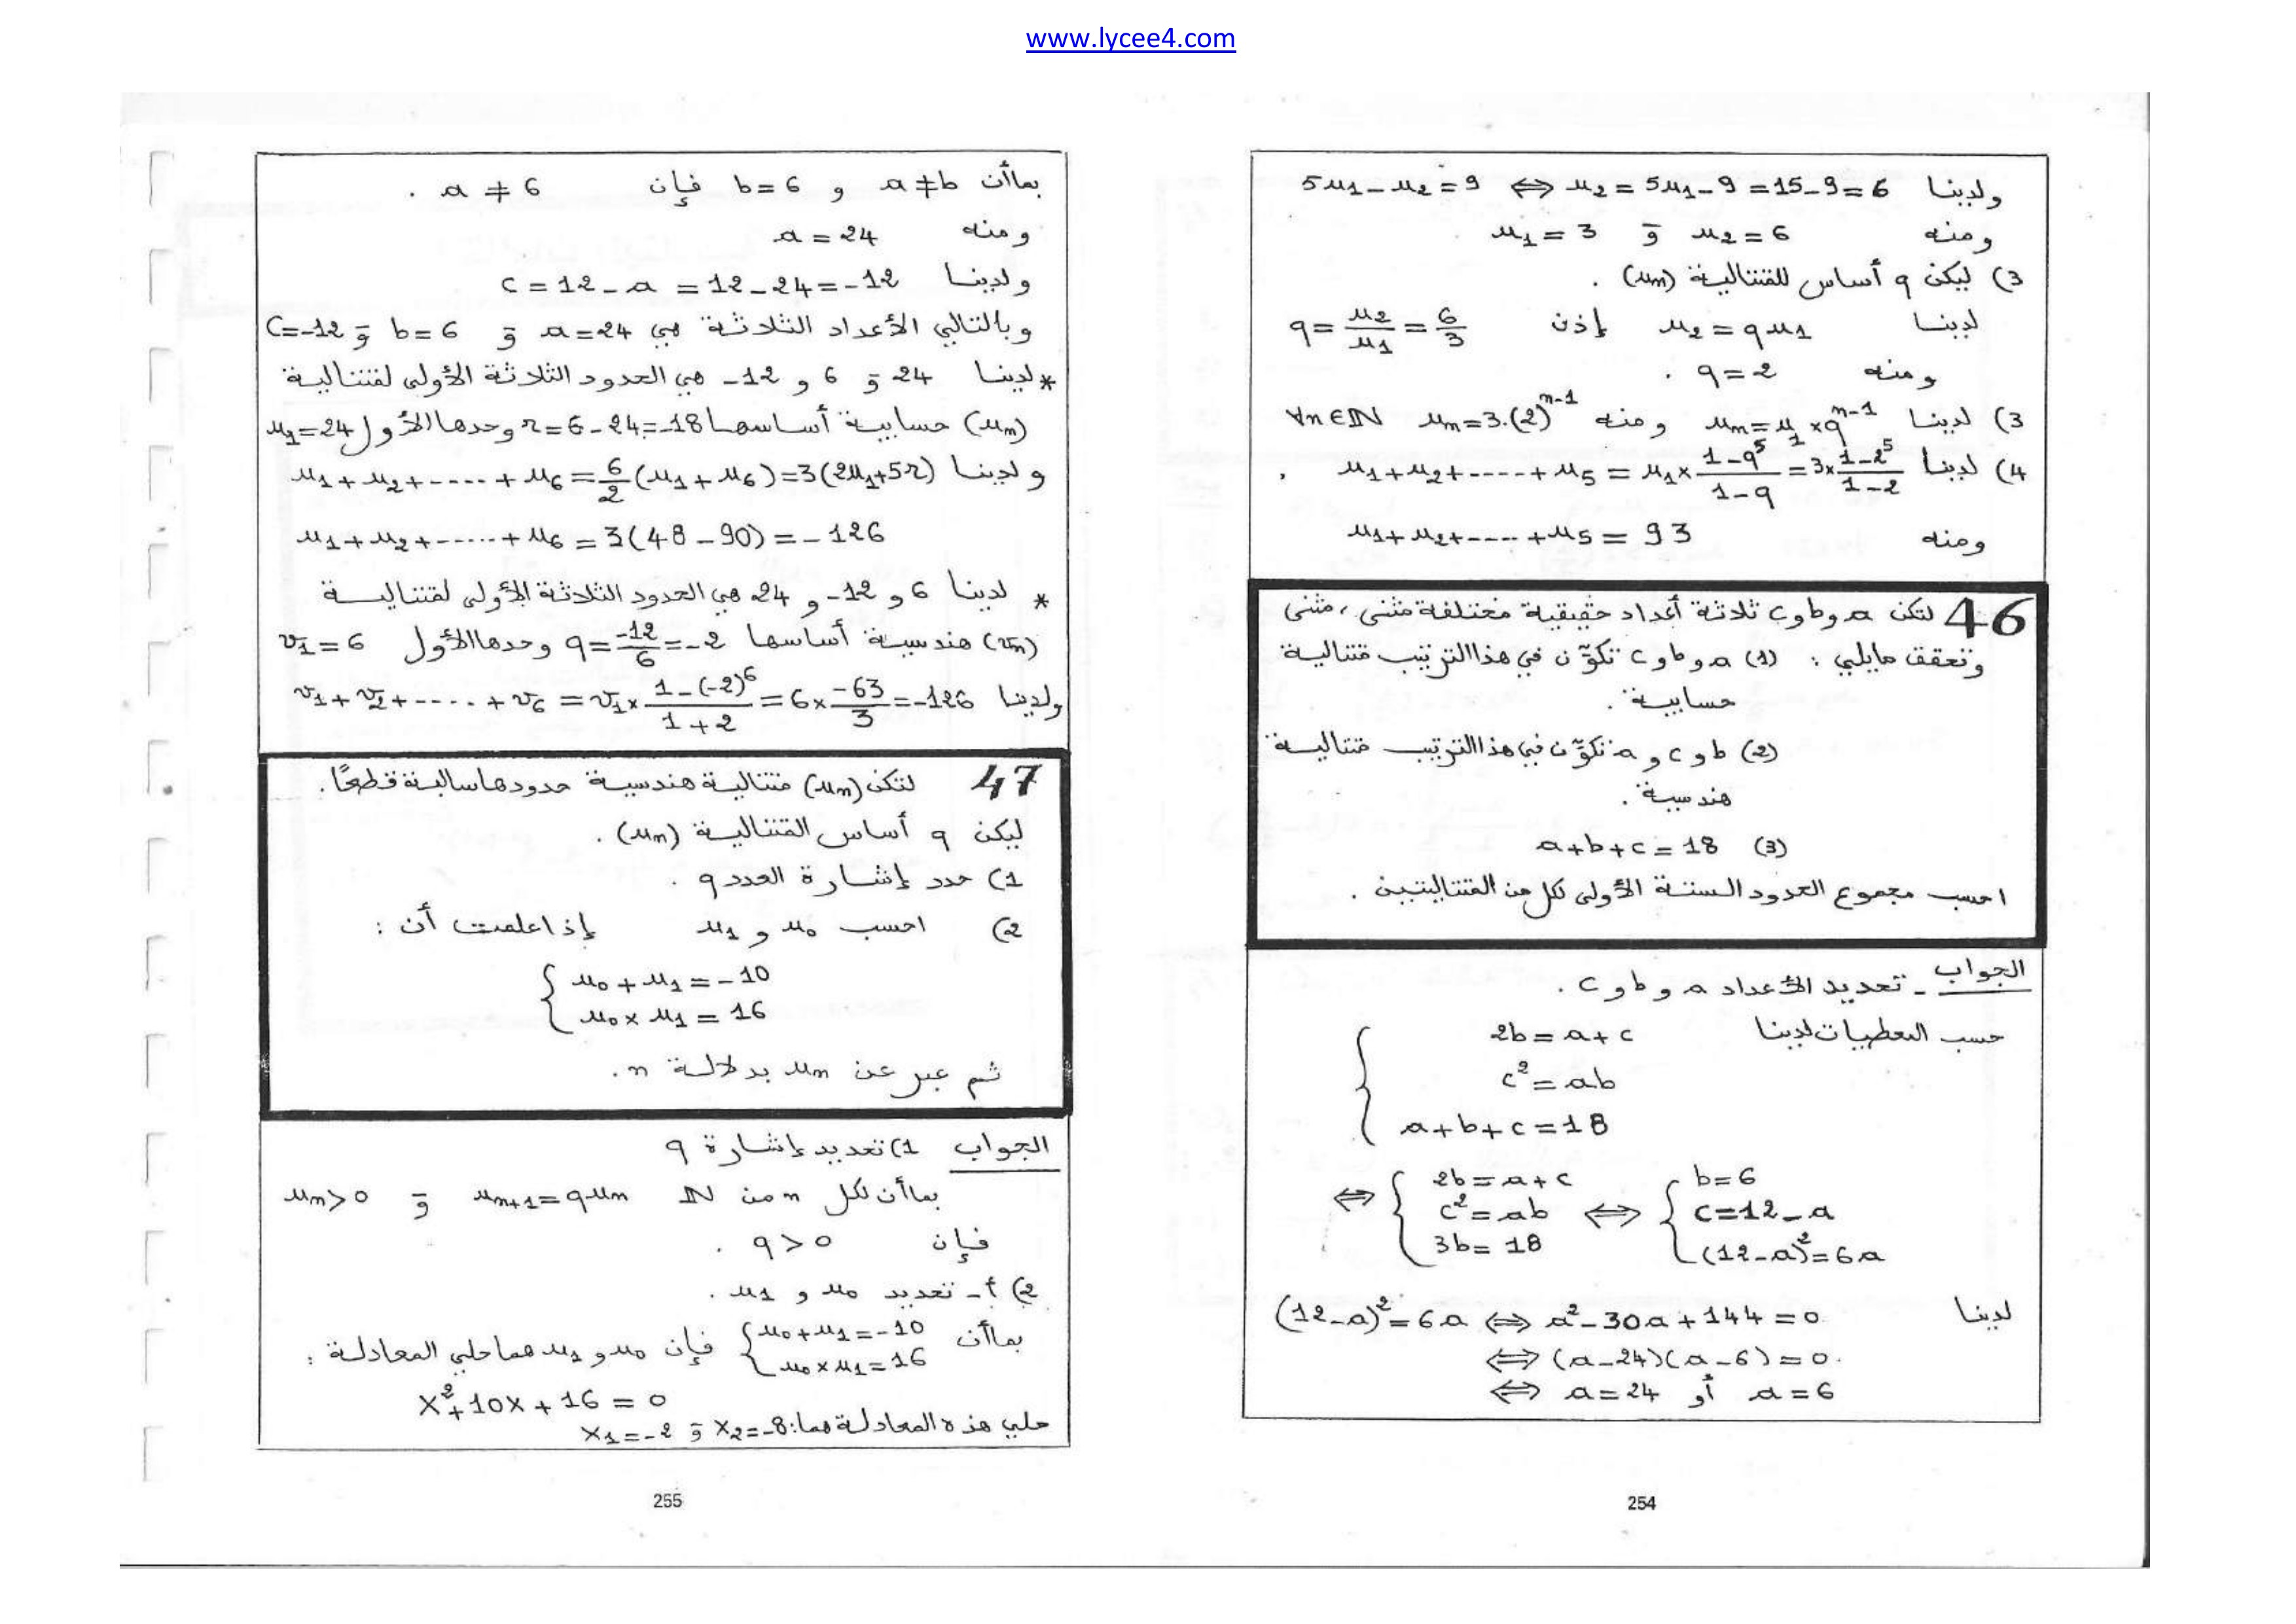 www.lycee4.com
ولدينا 5u₁ - u₂ = 9 ⟺ u₂ = 5u₁ - 9 = 15 - 9 = 6
ومنه u₂ = 6 و u₁ = 3
3) ليكن q أساس للمتتالية (uₙ) .
لدينا u₂ = q u₁ إذن q = u₂/u₁ = 6/3
ومنه q = 2 .
3) لدينا uₙ = u₁ × qⁿ⁻¹ ومنه ∀n∈ℕ uₙ = 3.(2)ⁿ⁻¹
4) لدينا u₁ + u₂ + ----- + u₅ = u₁ × (1 - q⁵)/(1 - q) = 3 × (1 - 2⁵)/(1 - 2) .
ومنه u₁ + u₂ + ---- + u₅ = 93
46 لتكن a و b و c ثلاثة أعداد حقيقية مختلفة مثنى ، مثنى
وتحقق مايلي : (1) a و b و c تكوّن في هذا الترتيب متتالية
حسابية .
(2) b و c و a تكوّن في هذا الترتيب متتالية
هندسية .
(3) a + b + c = 18
احسب مجموع الحدود الستة الأولى لكل من المتتاليتين .
الجواب - تحديد الأعداد a و b و c .
حسب المعطيات لدينا { 2b = a + c
c² = ab
a + b + c = 18
⟺ { 2b = a + c ⟺ { b = 6
c² = ab c = 12 - a
3b = 18 (12 - a)² = 6a
لدينا (12 - a)² = 6a ⟺ a² - 30a + 144 = 0
⟺ (a - 24)(a - 6) = 0 .
⟺ a = 24 أو a = 6
254
بماأن a ≠ b و b = 6 فإن a ≠ 6 .
ومنه a = 24
ولدينا c = 12 - a = 12 - 24 = -12
وبالتالي الأعداد الثلاثة هي a = 24 و b = 6 و c = -12
* لدينا 24 و 6 و -12 هي الحدود الثلاثة الأولى لمتتالية
(uₙ) حسابية أساسها r = 6 - 24 = -18 وحدها الأول u₁ = 24
ولدينا u₁ + u₂ + ---- + u₆ = 6/2 (u₁ + u₆) = 3(2u₁ + 5r)
u₁ + u₂ + ----- + u₆ = 3(48 - 90) = -126
* لدينا 6 و -12 و 24 هي الحدود الثلاثة الأولى لمتتالية
(vₙ) هندسية أساسها q = -12/6 = -2 وحدها الأول v₁ = 6
ولدينا v₁ + v₂ + ----. + v₆ = v₁ × (1 - (-2)⁶)/(1 + 2) = 6 × -63/3 = -126
47 لتكن (uₙ) متتالية هندسية حدودها سالبة قطعًا .
ليكن q أساس المتتالية (uₙ) .
1) حدد إشارة العدد q .
2) احسب u₀ و u₁ إذا علمت أن :
{ u₀ + u₁ = -10
u₀ × u₁ = 16
ثم عبر عن uₙ بدلالة n .
الجواب 1) تحديد إشارة q
بماأن لكل n من ℕ uₙ₊₁ = q uₙ و uₙ > 0
فإن q > 0 .
2) أ - تحديد u₀ و u₁ .
بماأن { u₀ + u₁ = -10
u₀ × u₁ = 16 فإن u₀ و u₁ هما حلي المعادلة :
X² + 10X + 16 = 0
حلي هذه المعادلة هما : X₂ = -8 و X₁ = -2
255